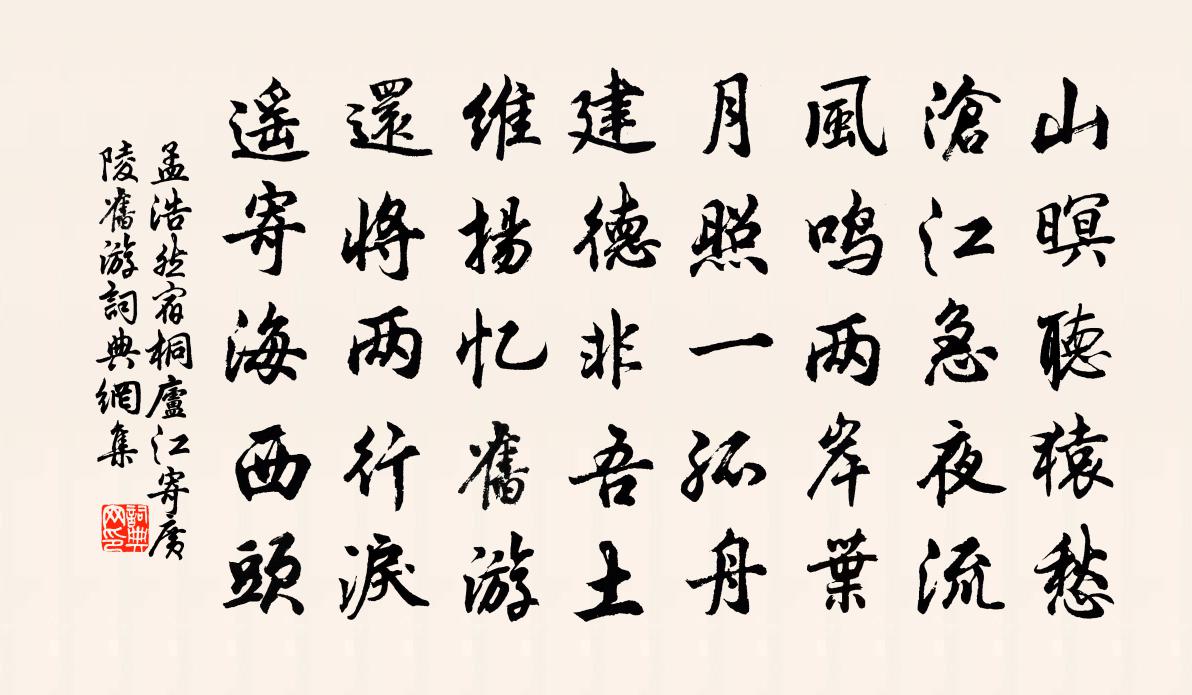 山暝聽猿愁
滄江急夜流
風鸣两岸葉
月照一孤舟
建德非吾土
維揚忆舊游
還将两行淚
遥寄海西頭
孟浩然宿桐廬江寄廣
陵舊游詞典網集
詞典
网印